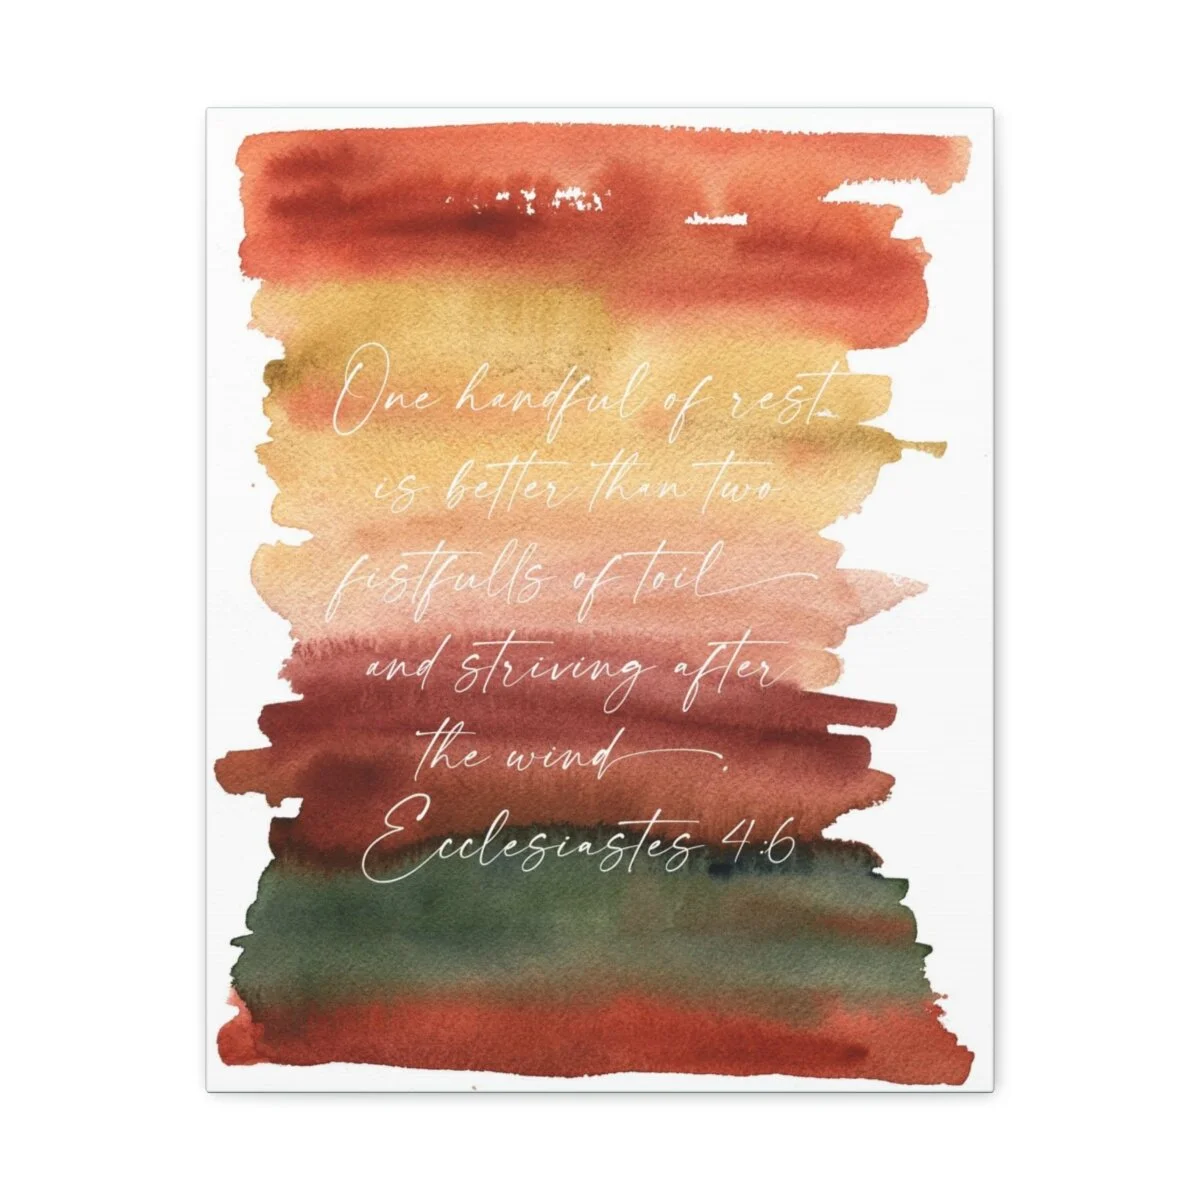 One handful of rest
is better than two
fistfulls of toil
and striving after
the wind.
Ecclesiastes 4:6